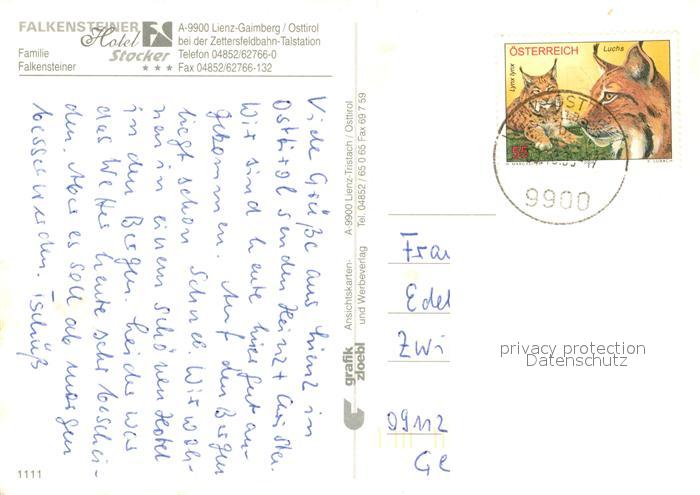 FALKENSTEINER
Hotel
Stocker
★★★
Familie
Falkensteiner
A-9900 Lienz-Gaimberg / Osttirol
bei der Zettersfeldbahn-Talstation
Telefon 04852/62766-0
Fax 04852/62766-132
Viele Grüße aus Lienz in
Osttirol senden Heinz + Christer.
Wir sind heute hier gut an-
gekommen. Auf den Bergen
liegt schon Schnee. Wir woh-
nen in einem schönen Hotel
in den Bergen. Leider war
das Wetter heute sehr beschei-
den. Aber es soll ab morgen
besser werden. Tschüß
1111
grafik
zloebl
Ansichtskarten-
und Werbeverlag
A-9900 Lienz-Tristach / Osttirol
Tel. 04852 / 65 0 65 Fax 69 7 59
ÖSTERREICH
Luchs
Lynx lynx
55
POST
9900
Frau
Edel
Zwi
09112
Ge
privacy protection
Datenschutz